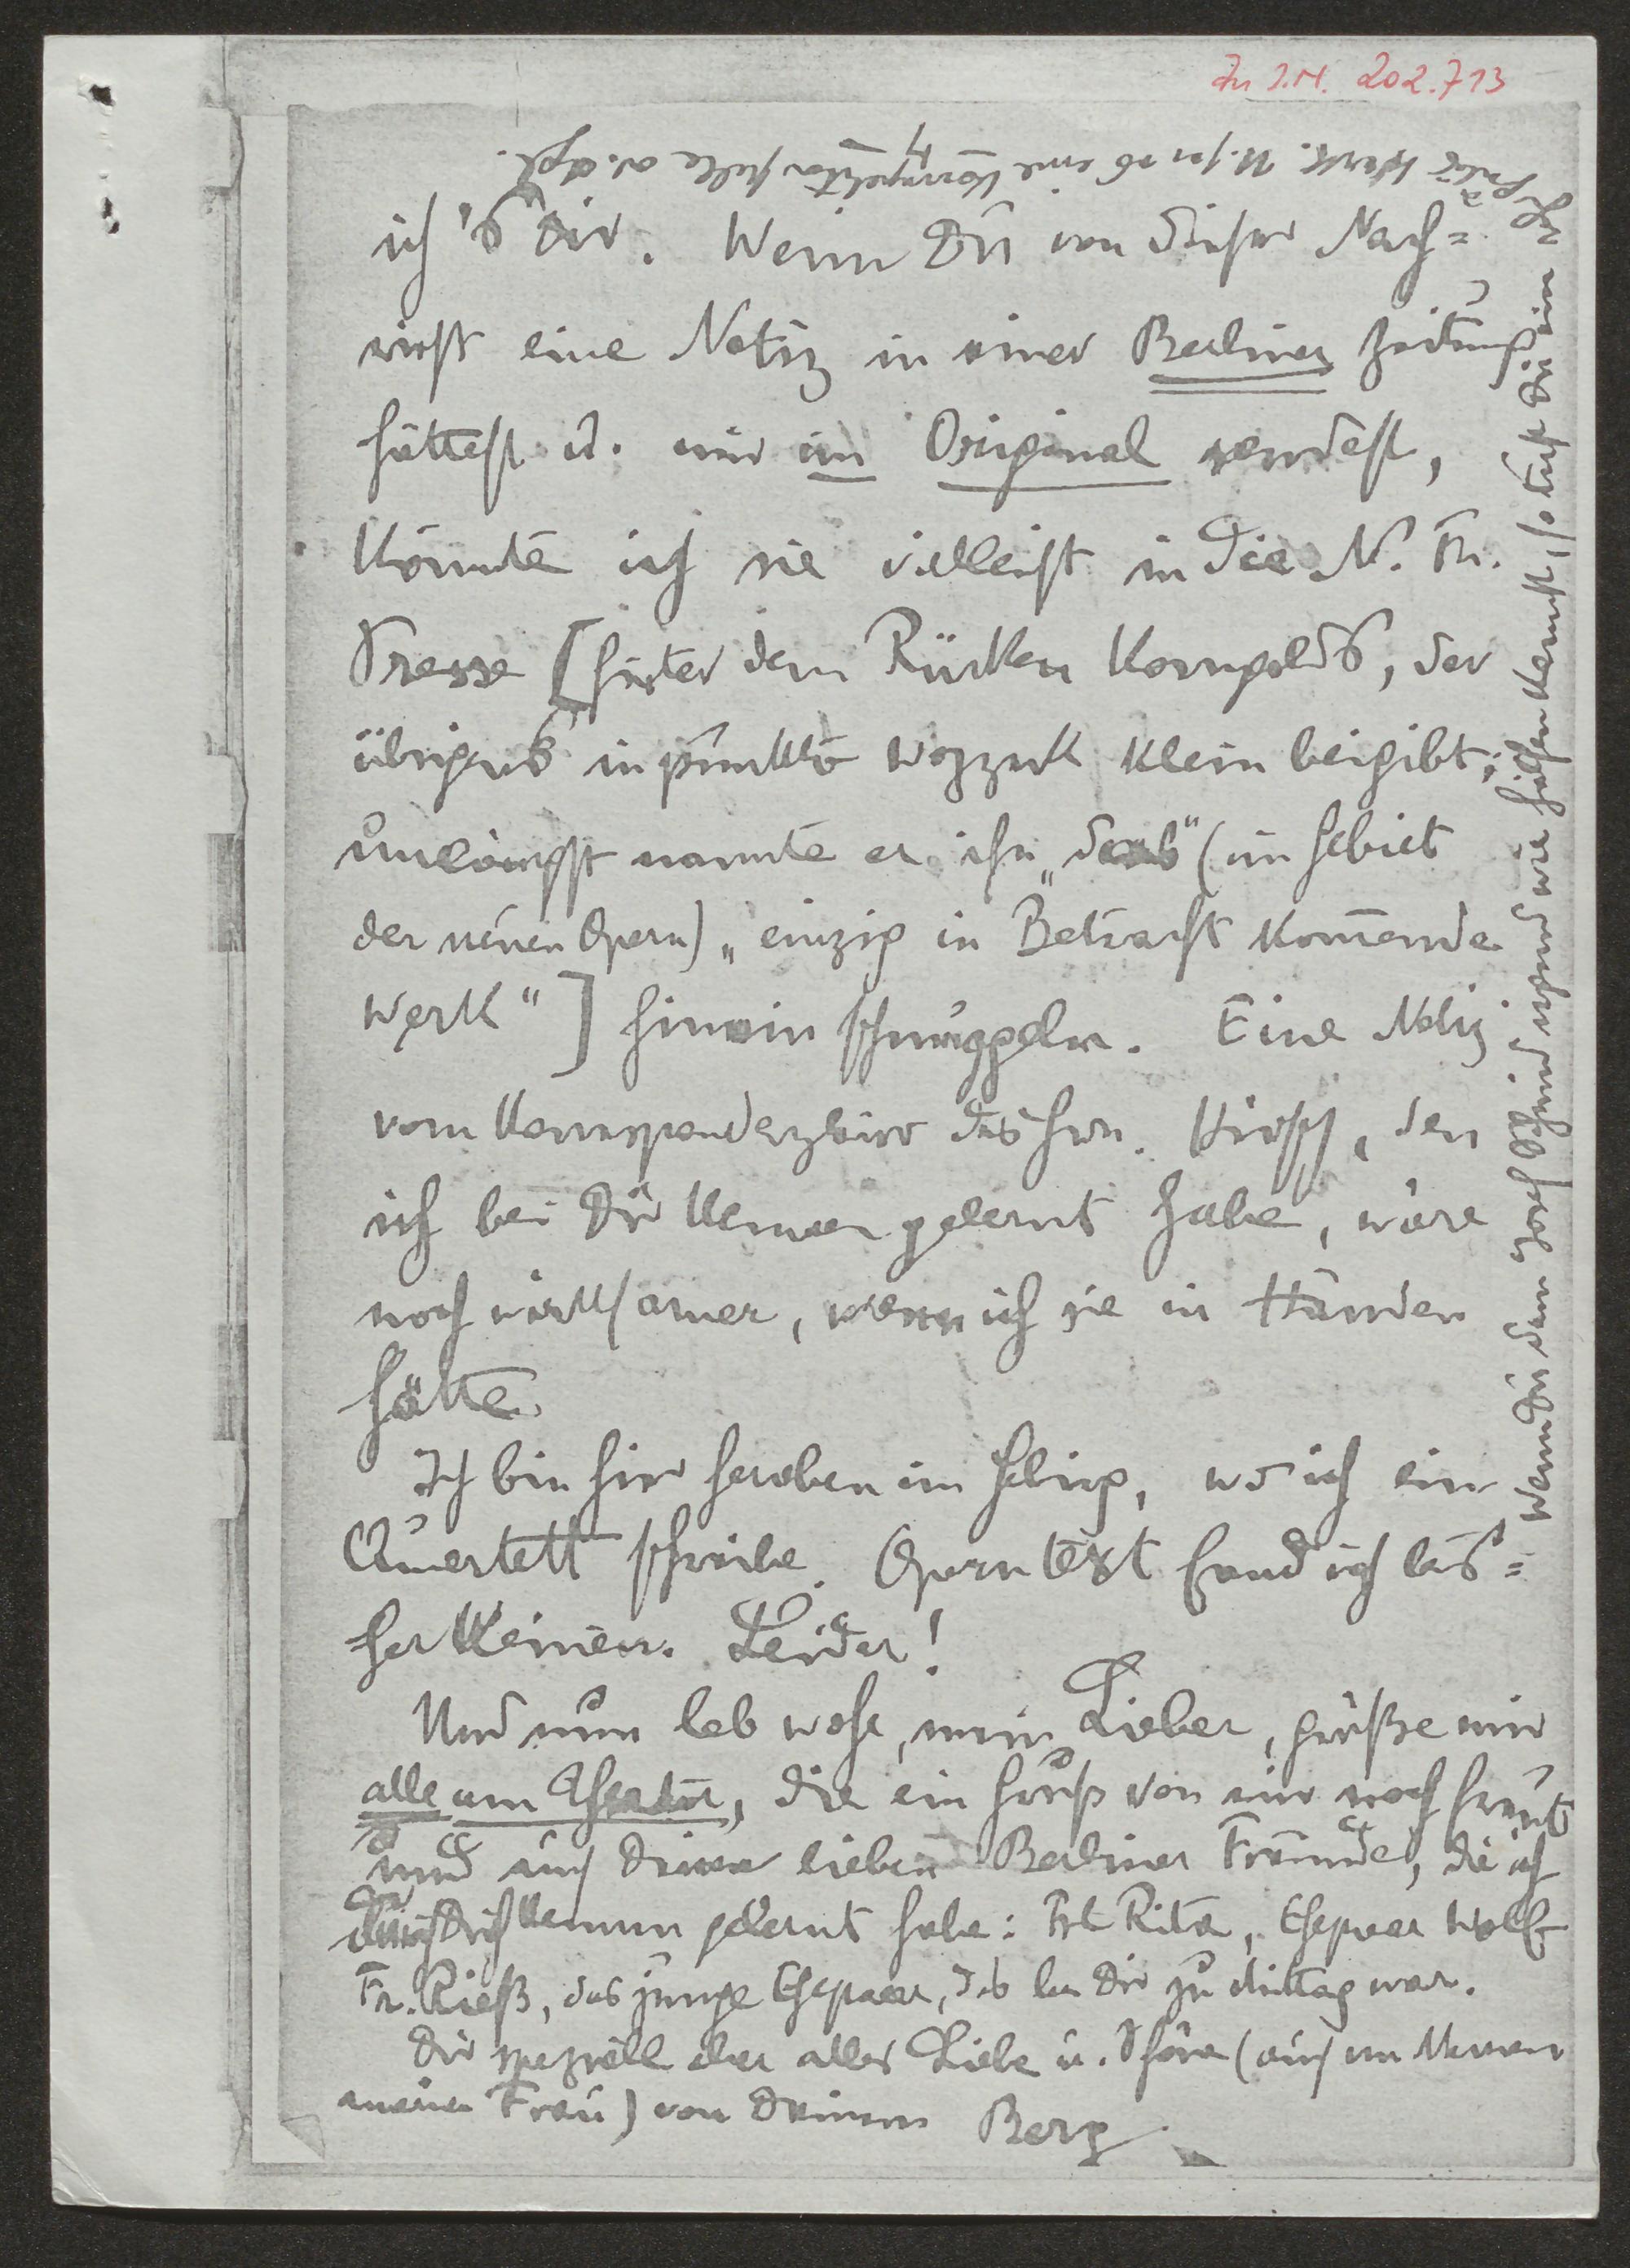 Zu I.N. 202.713
ich's Dir. Wenn Du von dieser Nach=
richt eine Notiz in einer Berliner Zeitung
hättest u. mir im Original sendest,
könnte ich sie vielleicht in die N. Fr.
Presse [hinter dem Rücken Korngolds, der
übrigens in punkto Wozzek klein beigibt;
unlängst nannte er ihn „das" (im Gebiet
der neuen Opern) „einzig in Betracht kom̄ende
Werk"] hineinschmuggeln. Eine Notiz
vom Korrespondenzbüro des Hrn. Hirsch, den
ich bei Dir kennen gelernt habe, wäre
noch wirksamer, wenn ich sie in Händen
hätte.
Ich bin hier heroben im Gebirg, wo ich ein
Quartett schreibe. Operntext fand ich bis=
her keinen. Leider!
Und nun leb wohl, mein Lieber, grüße mir
alle am Theater, die ein Gruß von mir noch freut
und auch Deine lieben Berliner Freunde, die ich
durch Dich kennen gelernt habe: Frl Rita, Ehepaar Wolff
Fr. Rieß, das junge Ehepaar, das bei Dir zu Mittag war.
Dir speziell aber alles Liebe u. Schöne (auch im Namen
meiner Frau) von Deinem Berg
Wenn Du dem Josef Schmid irgend wie helfen kannst, so tust Du ein
gutes Werk. U. sei es eine Korrepetitorstelle od. dgl.